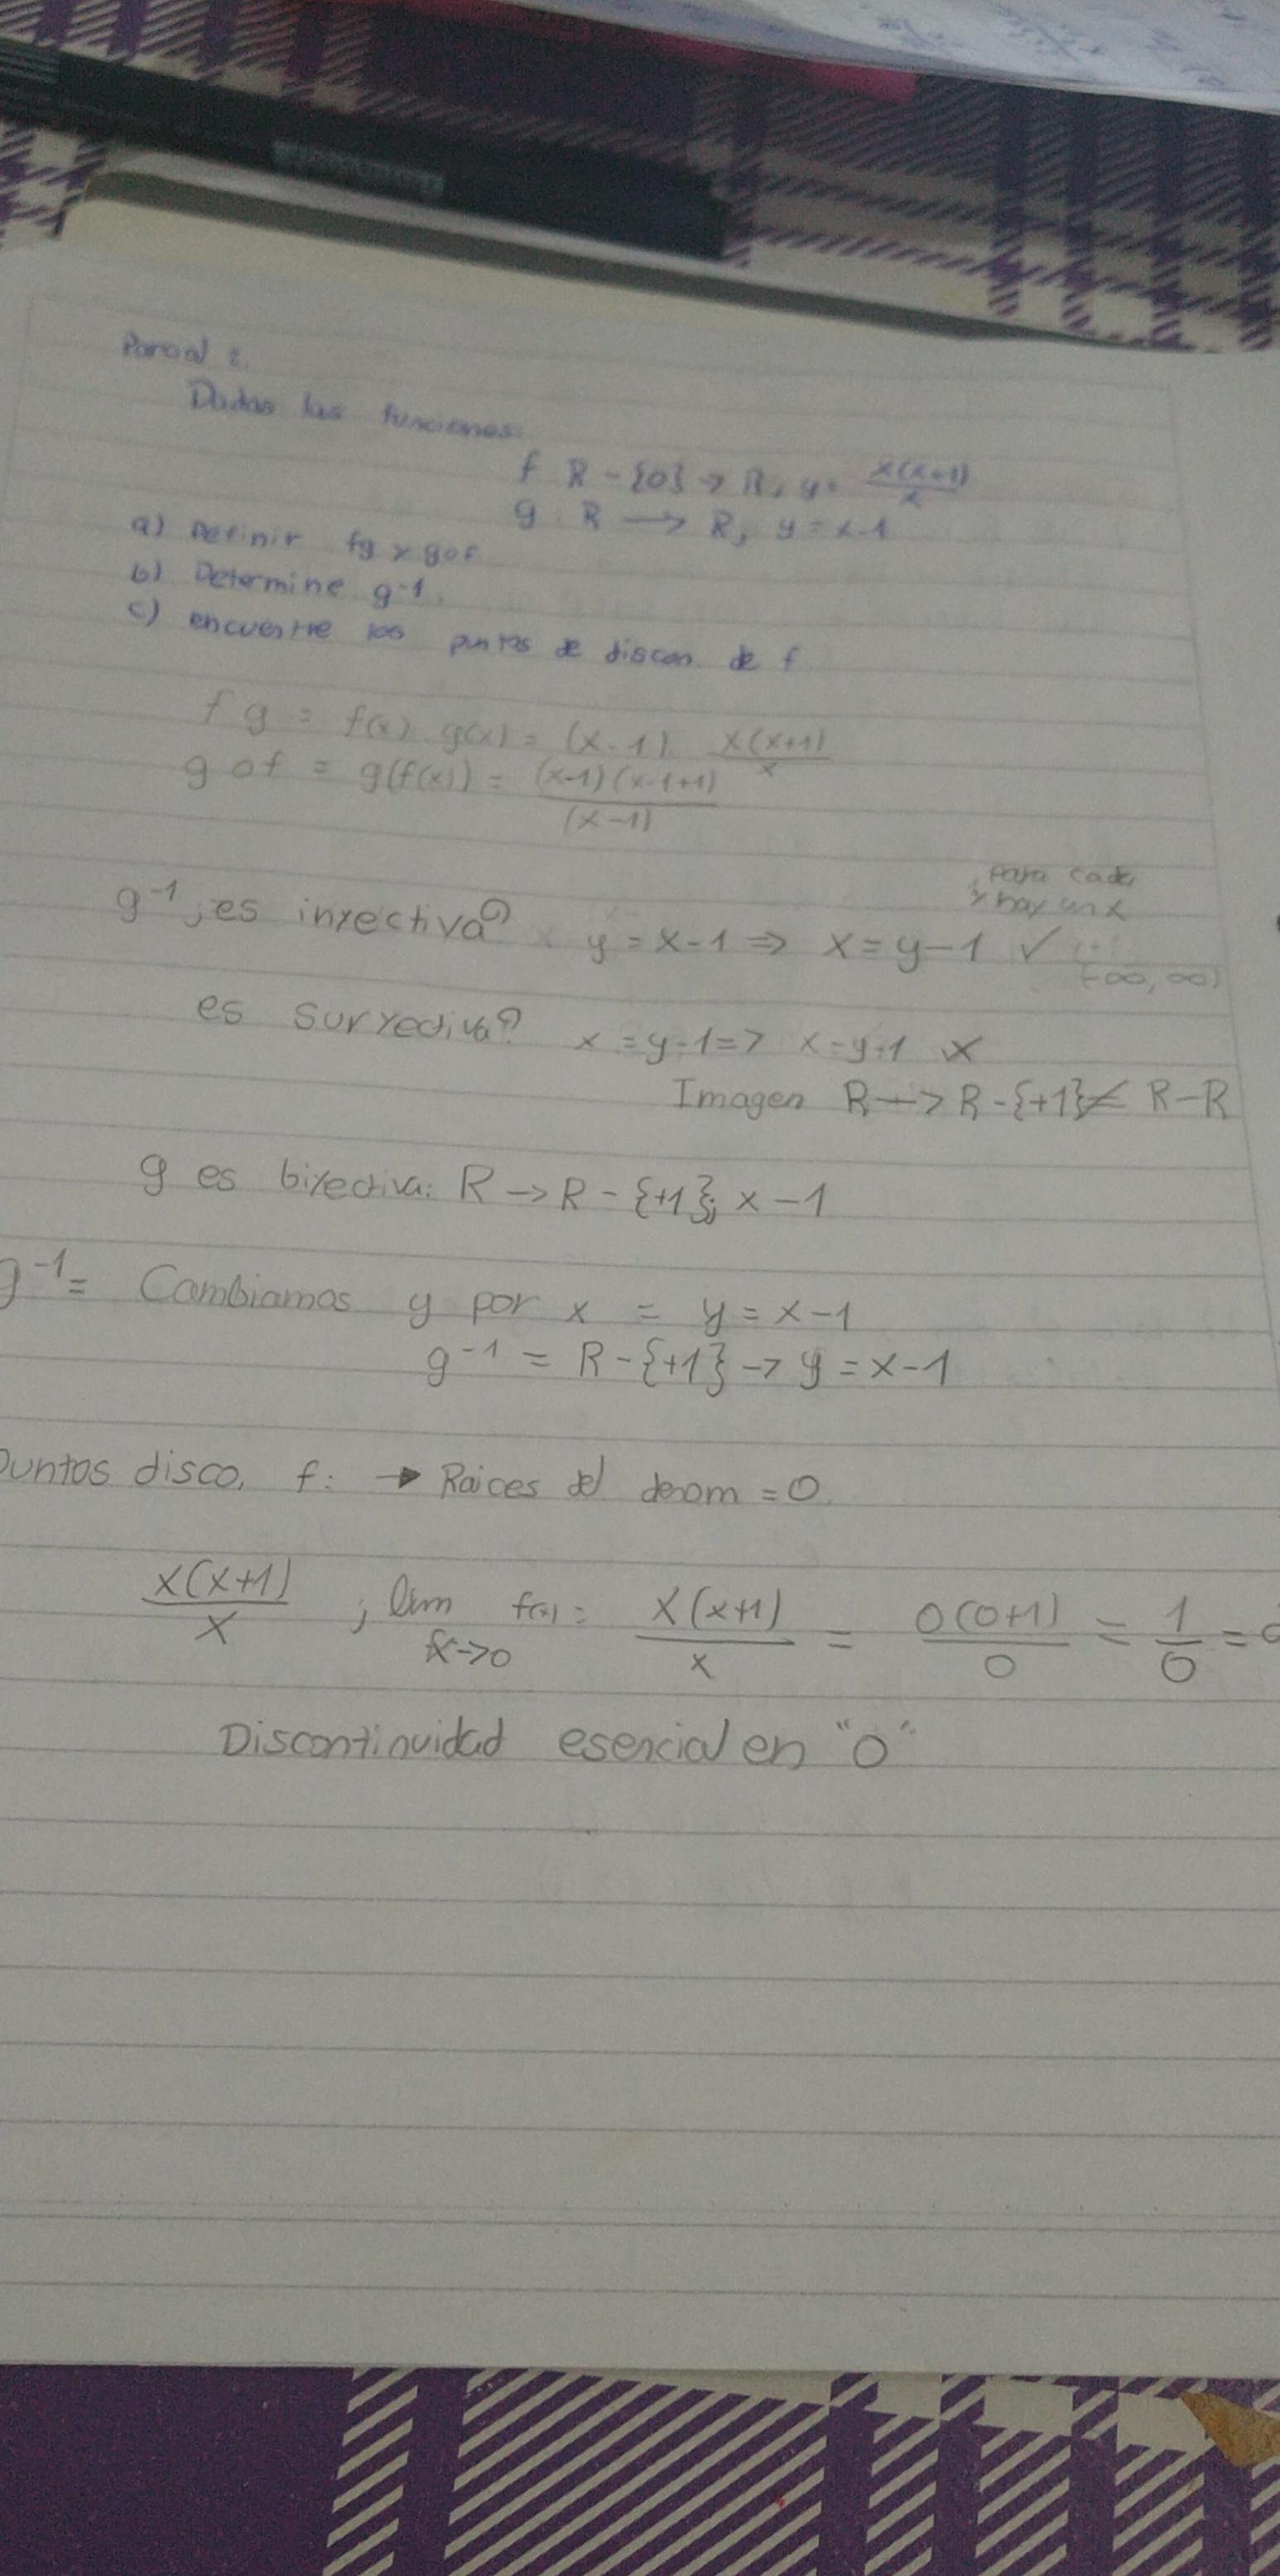 Parcial 2.
Dadas las funciones:
f R - {0} → R, y = x(x+1)/x
g : R → R, y = x-1
a) Definir fg y gof
b) Determine g-1.
c) encuentre los puntos de discon. de f
f g = f(x) . g(x) = (x-1) x(x+1)/x
g o f = g(f(x)) = (x-1)(x-1+1)/(x-1)
para cada
y hay un x
g-1, es inyectiva? y = x-1 ⇒ x = y-1 ✓
(-∞, ∞)
es suryectiva? x = y-1 => x = y-1 X
Imagen R → R - {+1} ≠ R-R
g es biyectiva: R → R - {+1}; x - 1
g-1 = Cambiamos y por x = y = x-1
g-1 = R - {+1} → y = x-1
Puntos disco. f: → Raices del denom = 0.
x(x+1)/x ; lim x→0 f(x) = x(x+1)/x = 0(0+1)/0 = 1/0 =
Discontinuidad esencial en "0"